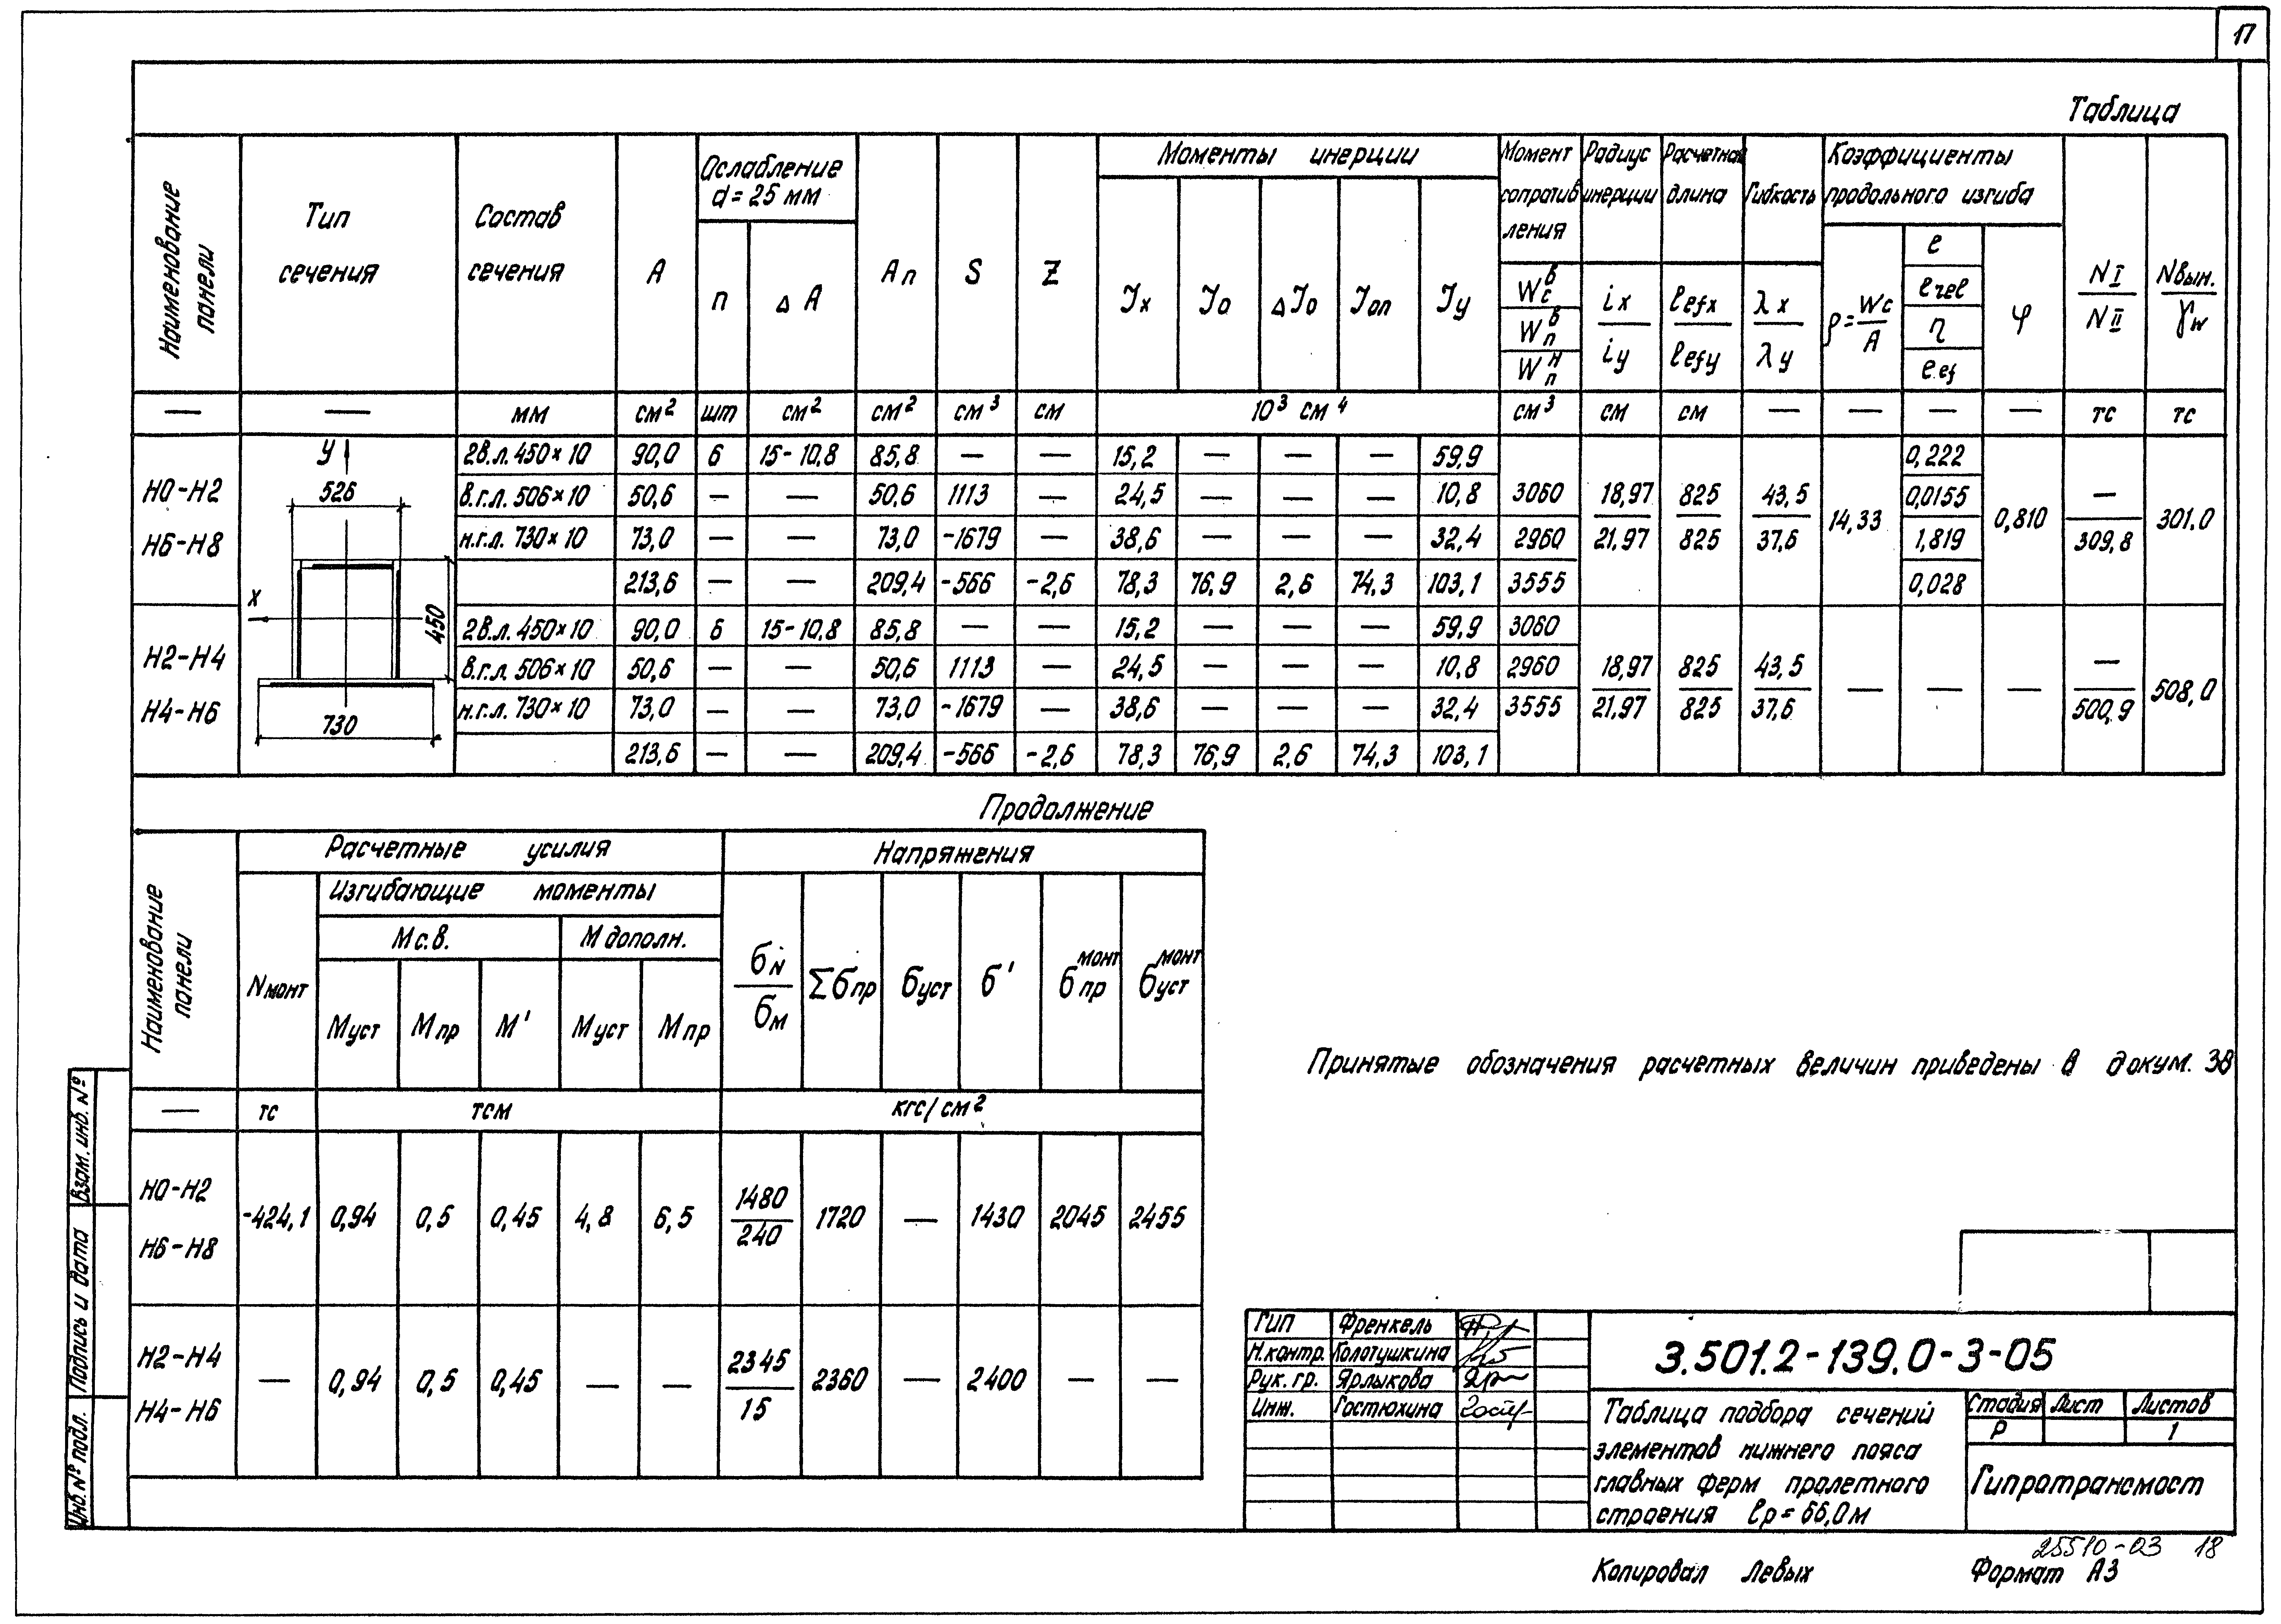 17
Таблица
Наименование панели
Тип сечения
Состав сечения
A
Ослабление d = 25 мм
n
Δ A
Aп
S
Z
Моменты инерции
Jx
Jo
ΔJo
Jоп
Jy
Момент сопротивления
Wс в
Wп в
Wп н
Радиус инерции
ix
iy
Расчетная длина
lefx
lefy
Гибкость
λx
λy
Коэффициенты продольного изгиба
ρ = Wc / A
e
erel
η
eef
φ
N I
N II
Nвын.
γw
— — мм см² шт см² см² см³ см 10³ см⁴ см³ см см — — — — тс тс
Н0-Н2
Н6-Н8
У
526
X
450
730
2в.л. 450×10 90,0 6 15-10,8 85,8 — — 15,2 — — — 59,9
в.г.л. 506×10 50,6 — — 50,6 1113 — 24,5 — — — 10,8
н.г.л. 730×10 73,0 — — 73,0 -1679 — 38,6 — — — 32,4
213,6 — — 209,4 -566 -2,6 78,3 76,9 2,6 74,3 103,1
3060
2960
3555
18,97
21,97
825
825
43,5
37,6
14,33
0,222
0,0155
1,819
0,028
0,810
—
309,8
301.0
Н2-Н4
Н4-Н6
2в.л. 450×10 90,0 6 15-10,8 85,8 — — 15,2 — — — 59,9 3060
в.г.л. 506×10 50,6 — — 50,6 1113 — 24,5 — — — 10,8 2960
н.г.л. 730×10 73,0 — — 73,0 -1679 — 38,6 — — — 32,4 3555
213,6 — — 209,4 -566 -2,6 78,3 76,9 2,6 74,3 103,1
18,97
21,97
825
825
43,5
37,6
— — —
—
500,9
508,0
Продолжение
Наименование панели
Расчетные усилия
Напряжения
Изгибающие моменты
Мс.в.
М дополн.
Nмонт
Муст
Мпр
М'
Муст
Мпр
σN
σM
Σσпр
σуст
σ'
σпр монт
σуст монт
— тс тсм кгс/см²
Н0-Н2
Н6-Н8
-424,1 0,94 0,5 0,45 4,8 6,5 1480/240 1720 — 1430 2045 2455
Н2-Н4
Н4-Н6
— 0,94 0,5 0,45 — — 2345/15 2360 — 2400 — —
Принятые обозначения расчетных величин приведены в докум. 38
Взам. инв. №
Подпись и дата
Инв. № подл.
ГИП Френкель
Н.контр. Колотушкина
Рук. гр. Ярлыкова
Инж. Гостюхина
3.501.2-139.0-3-05
Таблица подбора сечений
элементов нижнего пояса
главных ферм пролетного
строения lр = 66,0м
Стадия Лист Листов
Р 1
Гипротрансмост
25510-03 18
Копировал Левых
Формат А3